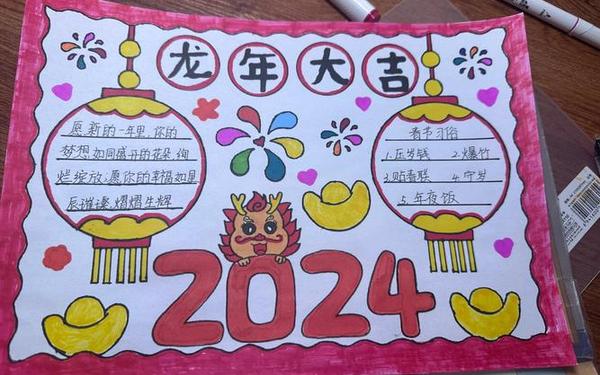 龙年大吉
愿新的一年里,你的
梦想如同盛开的花朵,绚
烂绽放,愿你的幸福如星
辰璀璨,熠熠生辉
春节习俗
1.压岁钱 2.爆竹
3.贴春联 4.守岁
5.年夜饭
2024